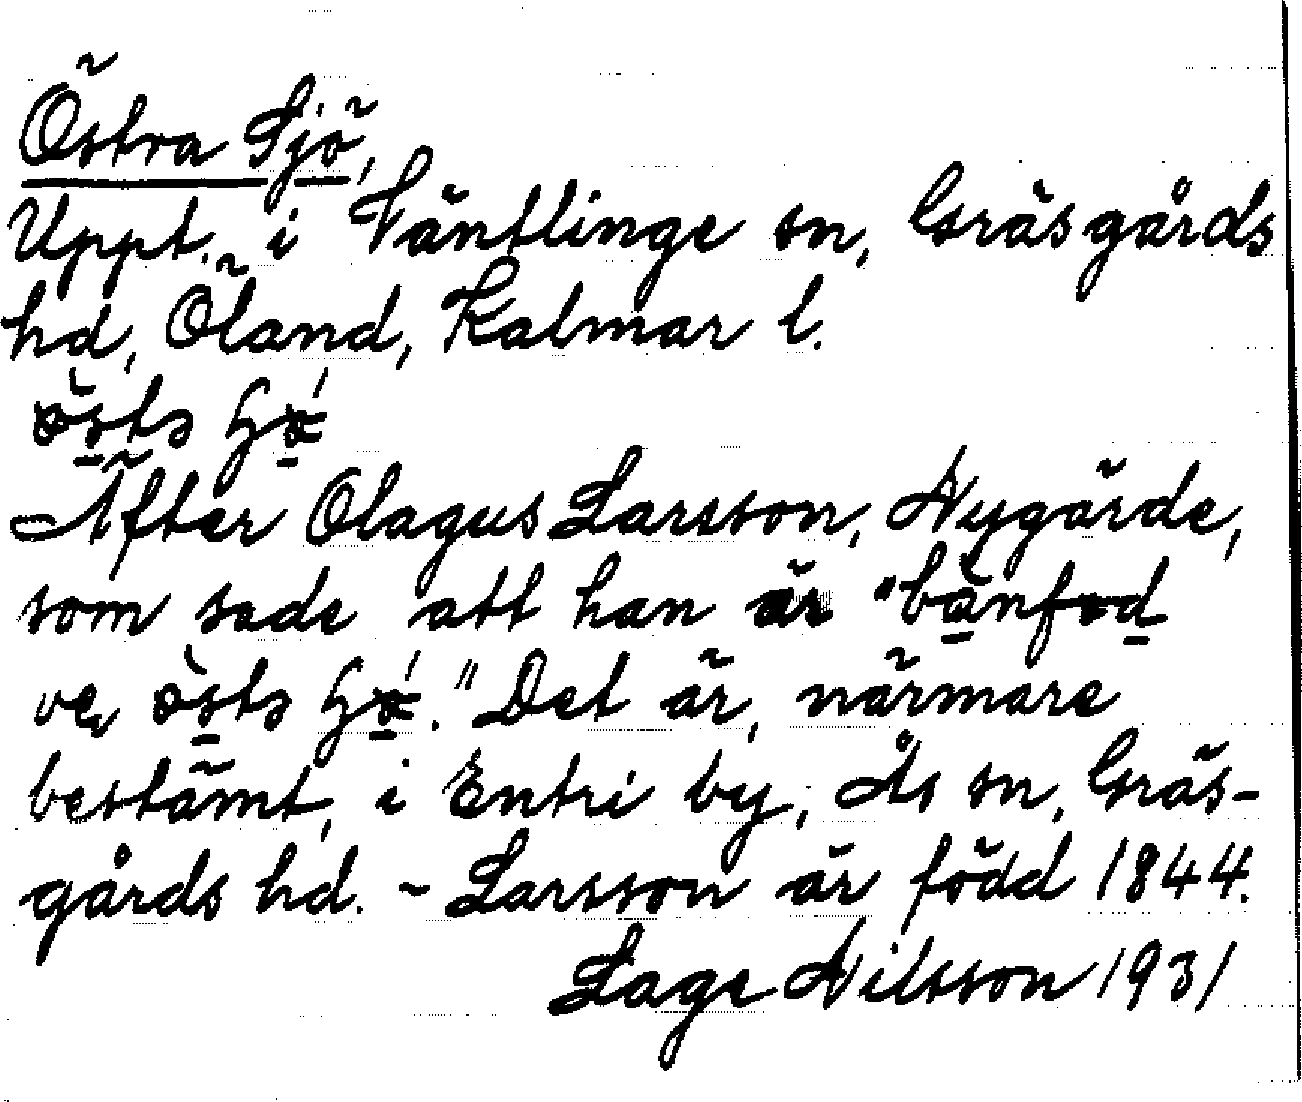 Östra Sjö,
Uppt. i Väntlinge sn, Gräsgårds
hd, Öland, Kalmar l.
Äfter Olagus Larsson, Nygärde,
som sade att han är "bānfød
Det är, närmare
bestämt, i Entri by, Ås sn, Gräs-
gårds hd. - Larsson är född 1844.
Lage Nilsson 1931